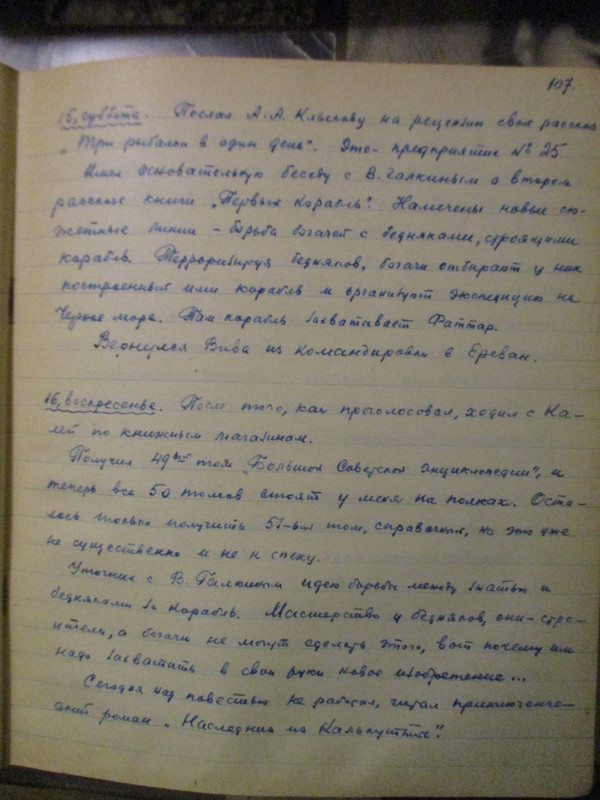 107.
15, суббота. Послал А.А. Клыкову на рецензию свой рассказ
„Три рыбалки в один день". Это - предприятие № 25
Имел основательную беседу с В. Галкиным о втором
рассказе книги „Первый корабль". Намечены новые сю-
жетные линии - борьба богачей с бедняками, строящими
корабль. Терроризируя бедняков, богачи отбирают у них
построенный ими корабль и организуют экспедицию на
Черное море. Там корабль захватывает Фаттар.
Вернулся Виба из командировки в Ереван.
16, воскресенье. После того, как проголосовал, ходил с Ка-
лей по книжным магазинам.
Получил 49ый том „Большой Советской Энциклопедии", и
теперь все 50 томов стоят у меня на полках. Оста-
лось только получить 51-ый том, справочный, но это уже
не существенно и не к спеху.
Уточнил с В. Галкиным идею борьбы между знатью и
бедняками за корабль. Мастерство у бедняков, они - стро-
ители, а богачи не могут сделать этого, вот почему им
надо захватить в свои руки новое изобретение...
Сегодня над повестью не работал, читал приключенче-
ский роман „Наследник из Калькутты".